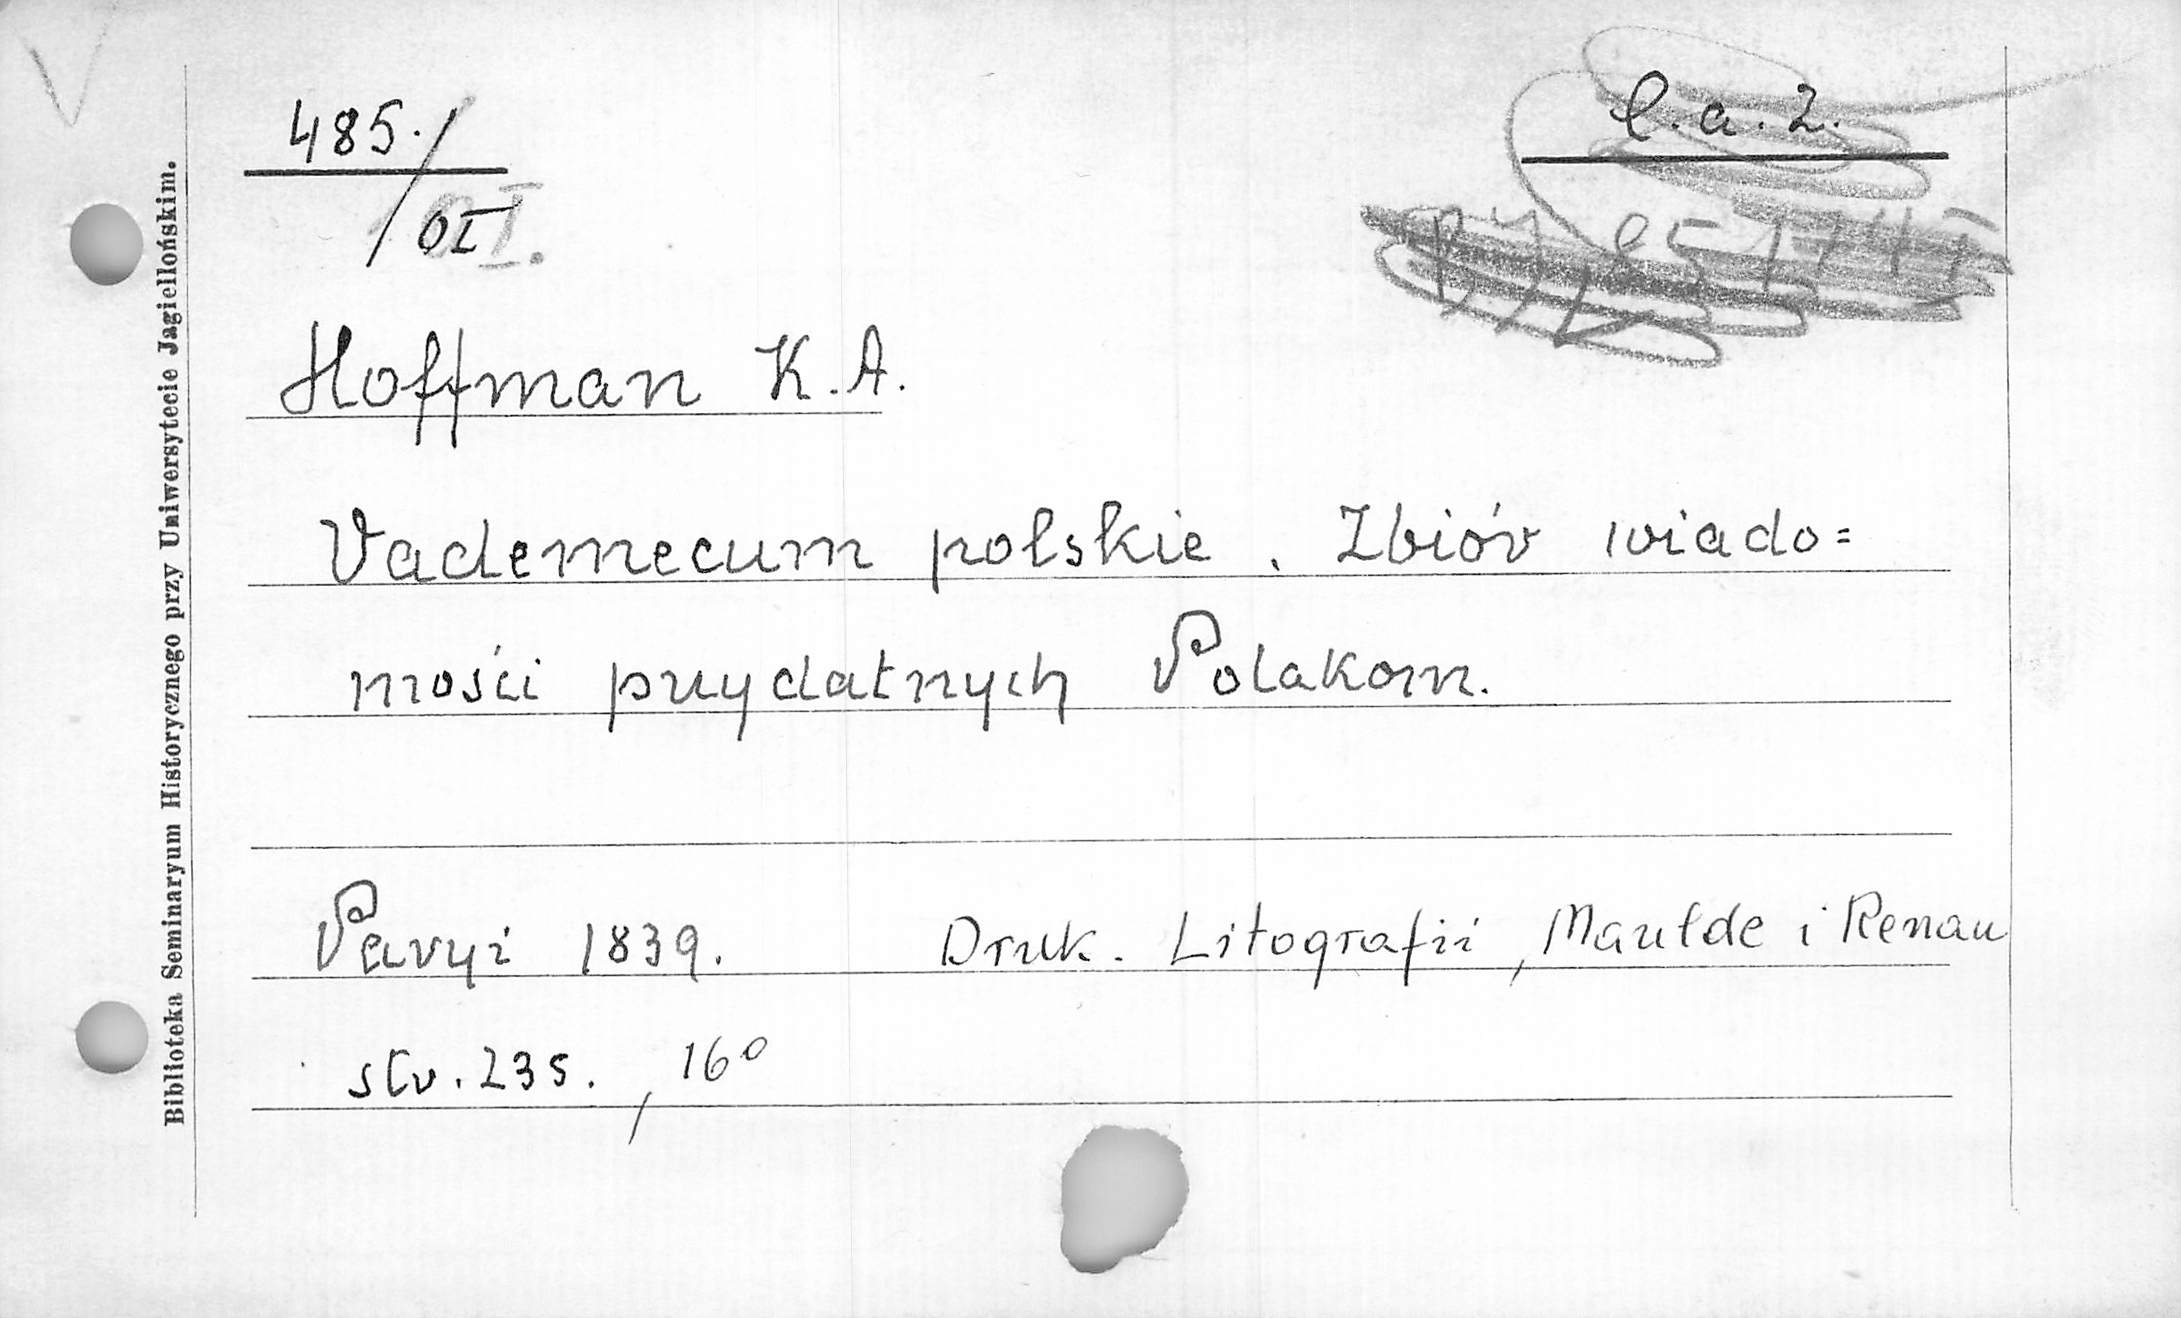 485./
OI I.
l.a.2.
Hoffman K.A.
Vademecum polskie. Zbiór wiado=
mości przydatnych Polakom.
Paryż 1839. Druk. Litografii, Maulde i Renau
str. 235., 16°
Biblioteka Seminaryum Historycznego przy Uniwersytecie Jagiellońskim.